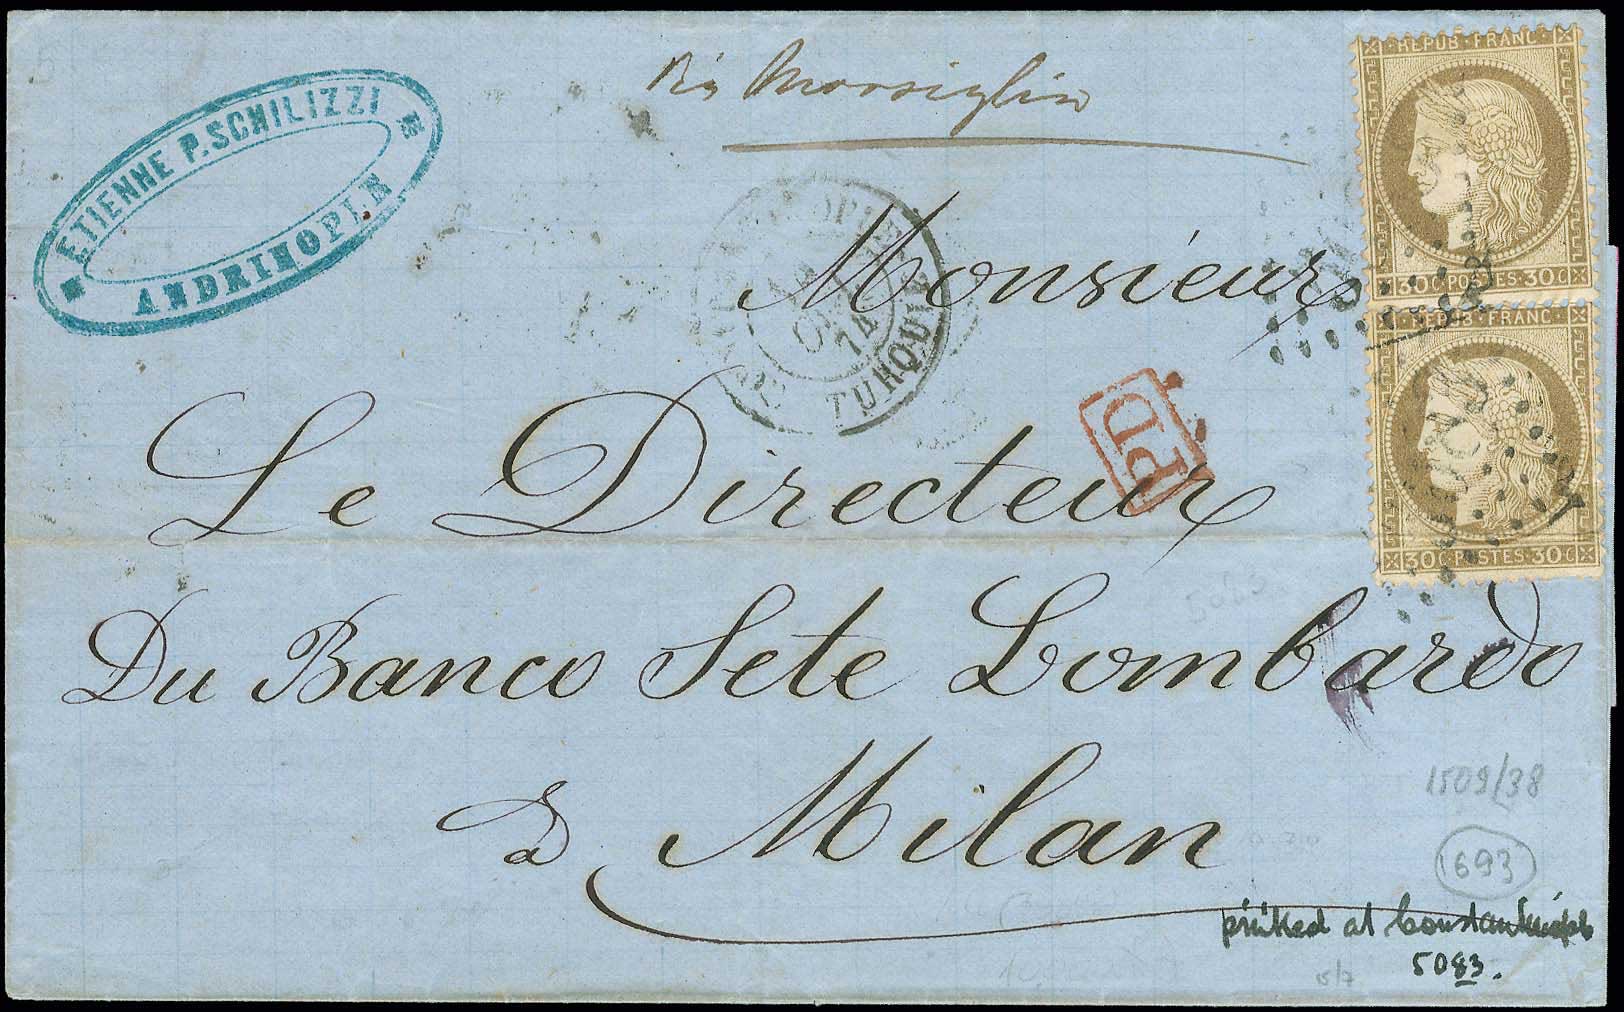 ETIENNE P. SCHILIZZI
ANDRINOPLE
Via Marsiglia
REPUB · FRANC ·
30 C · POSTES · 30 C
REPUB · FRANC ·
30 C · POSTES · 30 C
74
TURQUIE
PD
Monsieur
Le Directeur
Du Banco Sete Lombardo
à Milan
5083
1509/38
1693
printed at Constantinople
5083.